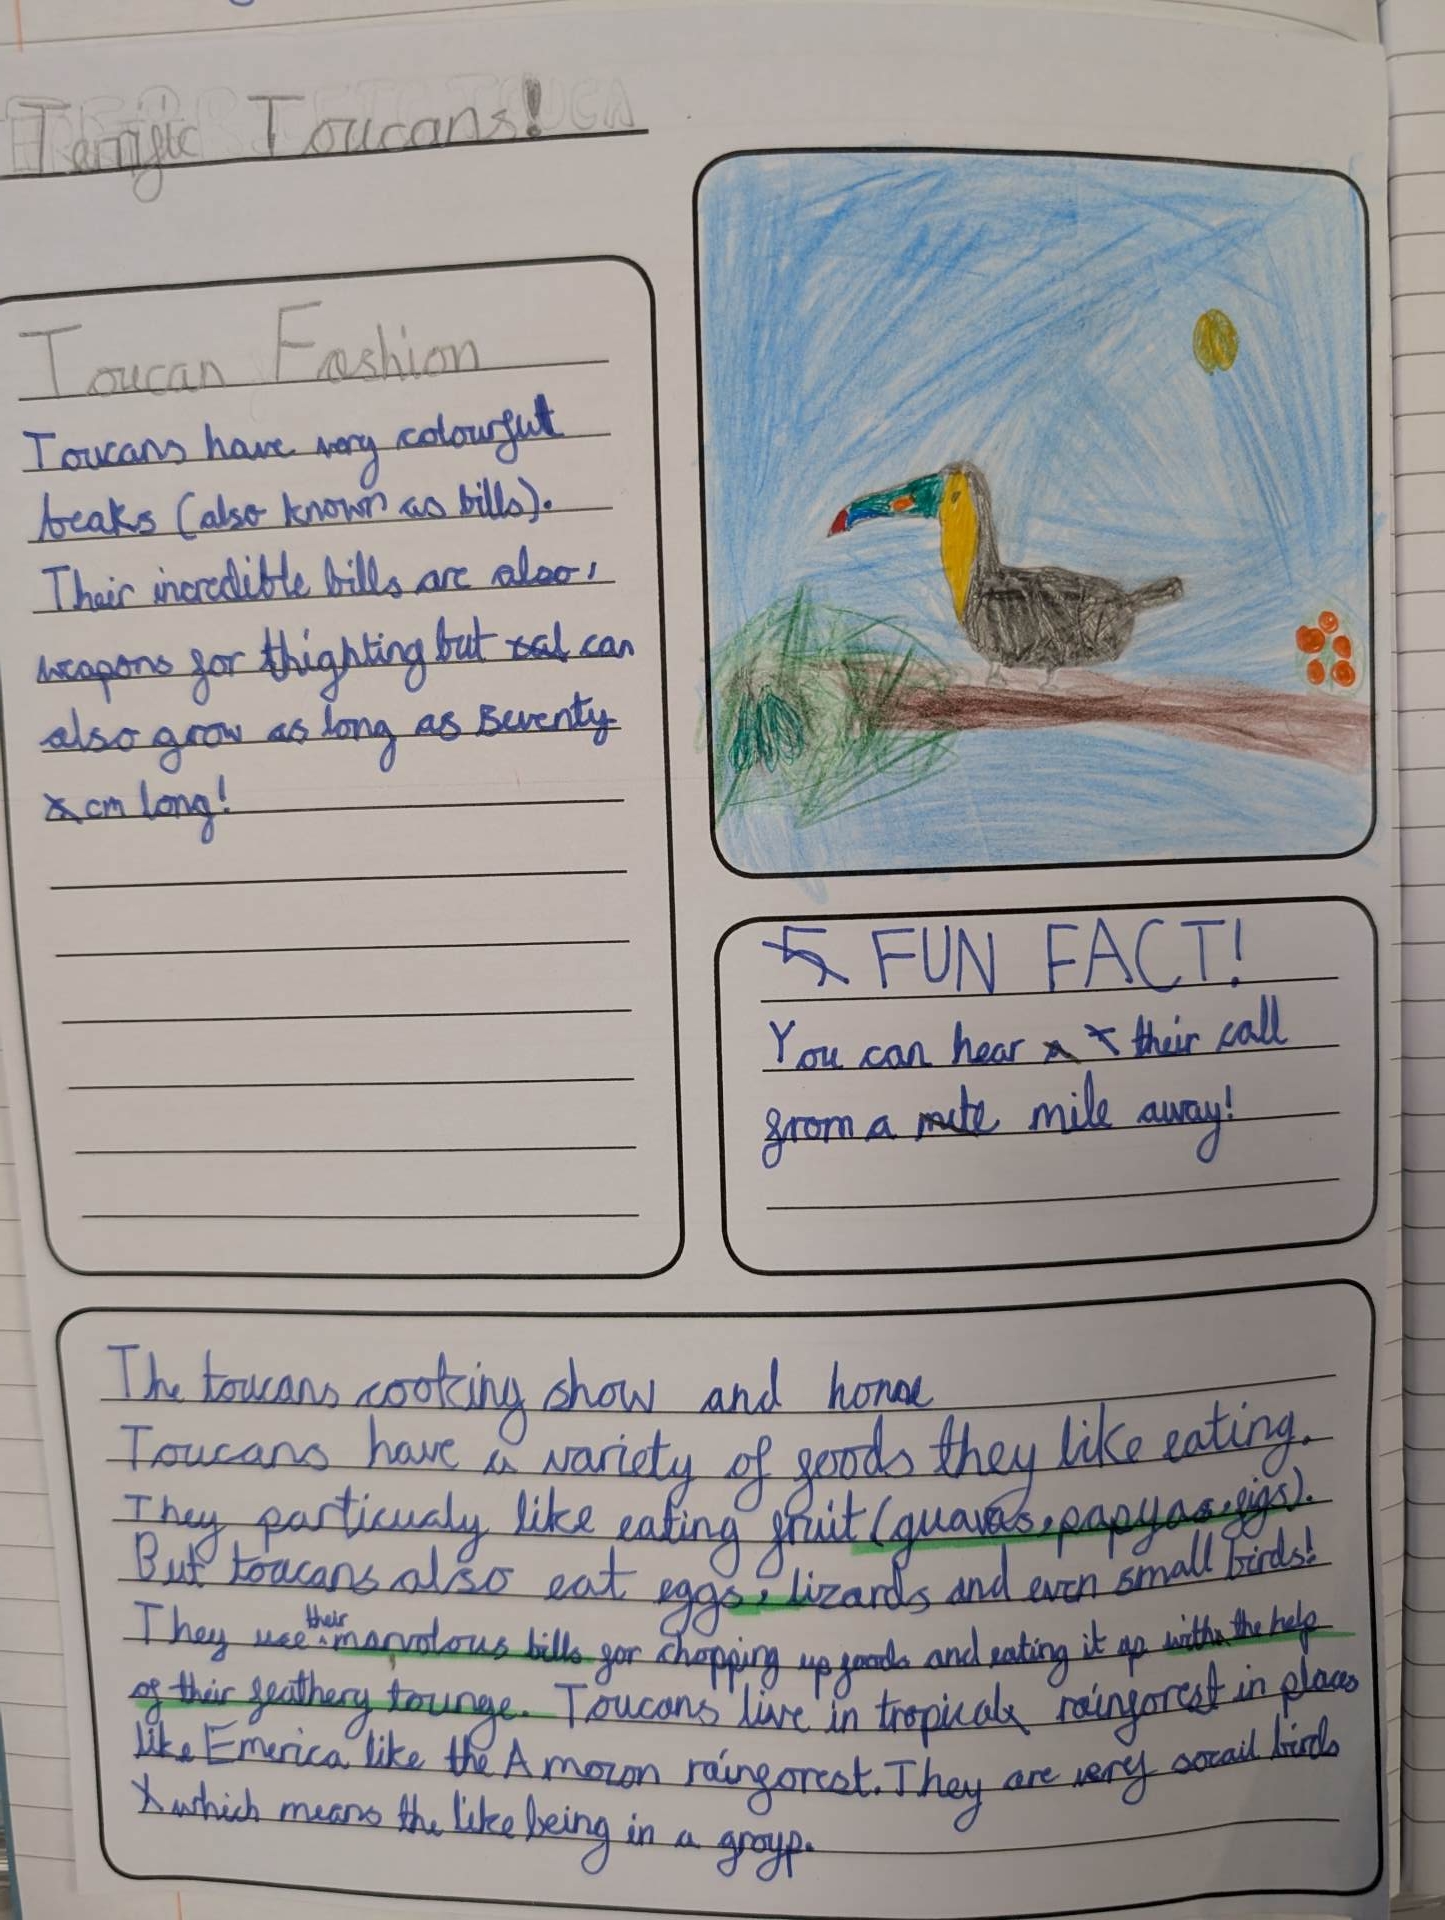 Terrific Toucans!
Toucan Fashion
Toucans have very colourful
beaks (also known as bills).
Their incredible bills are also,
weapons for thighting but can
also grow as long as seventy
cm long!
FUN FACT!
You can hear their call
from a mile away!
The toucans cooking show and home
Toucans have a variety of foods they like eating.
They particualy like eating fruit (guavas, papyas, figs).
But toucans also eat eggs, lizards and even small birds!
They use their marvolous bills for chopping up foods and eating it up with the help
of their feathery tounge. Toucans live in tropical rainforest in places
like Emerica like the Amozon rainforest. They are very socail birds
which means the like being in a group.